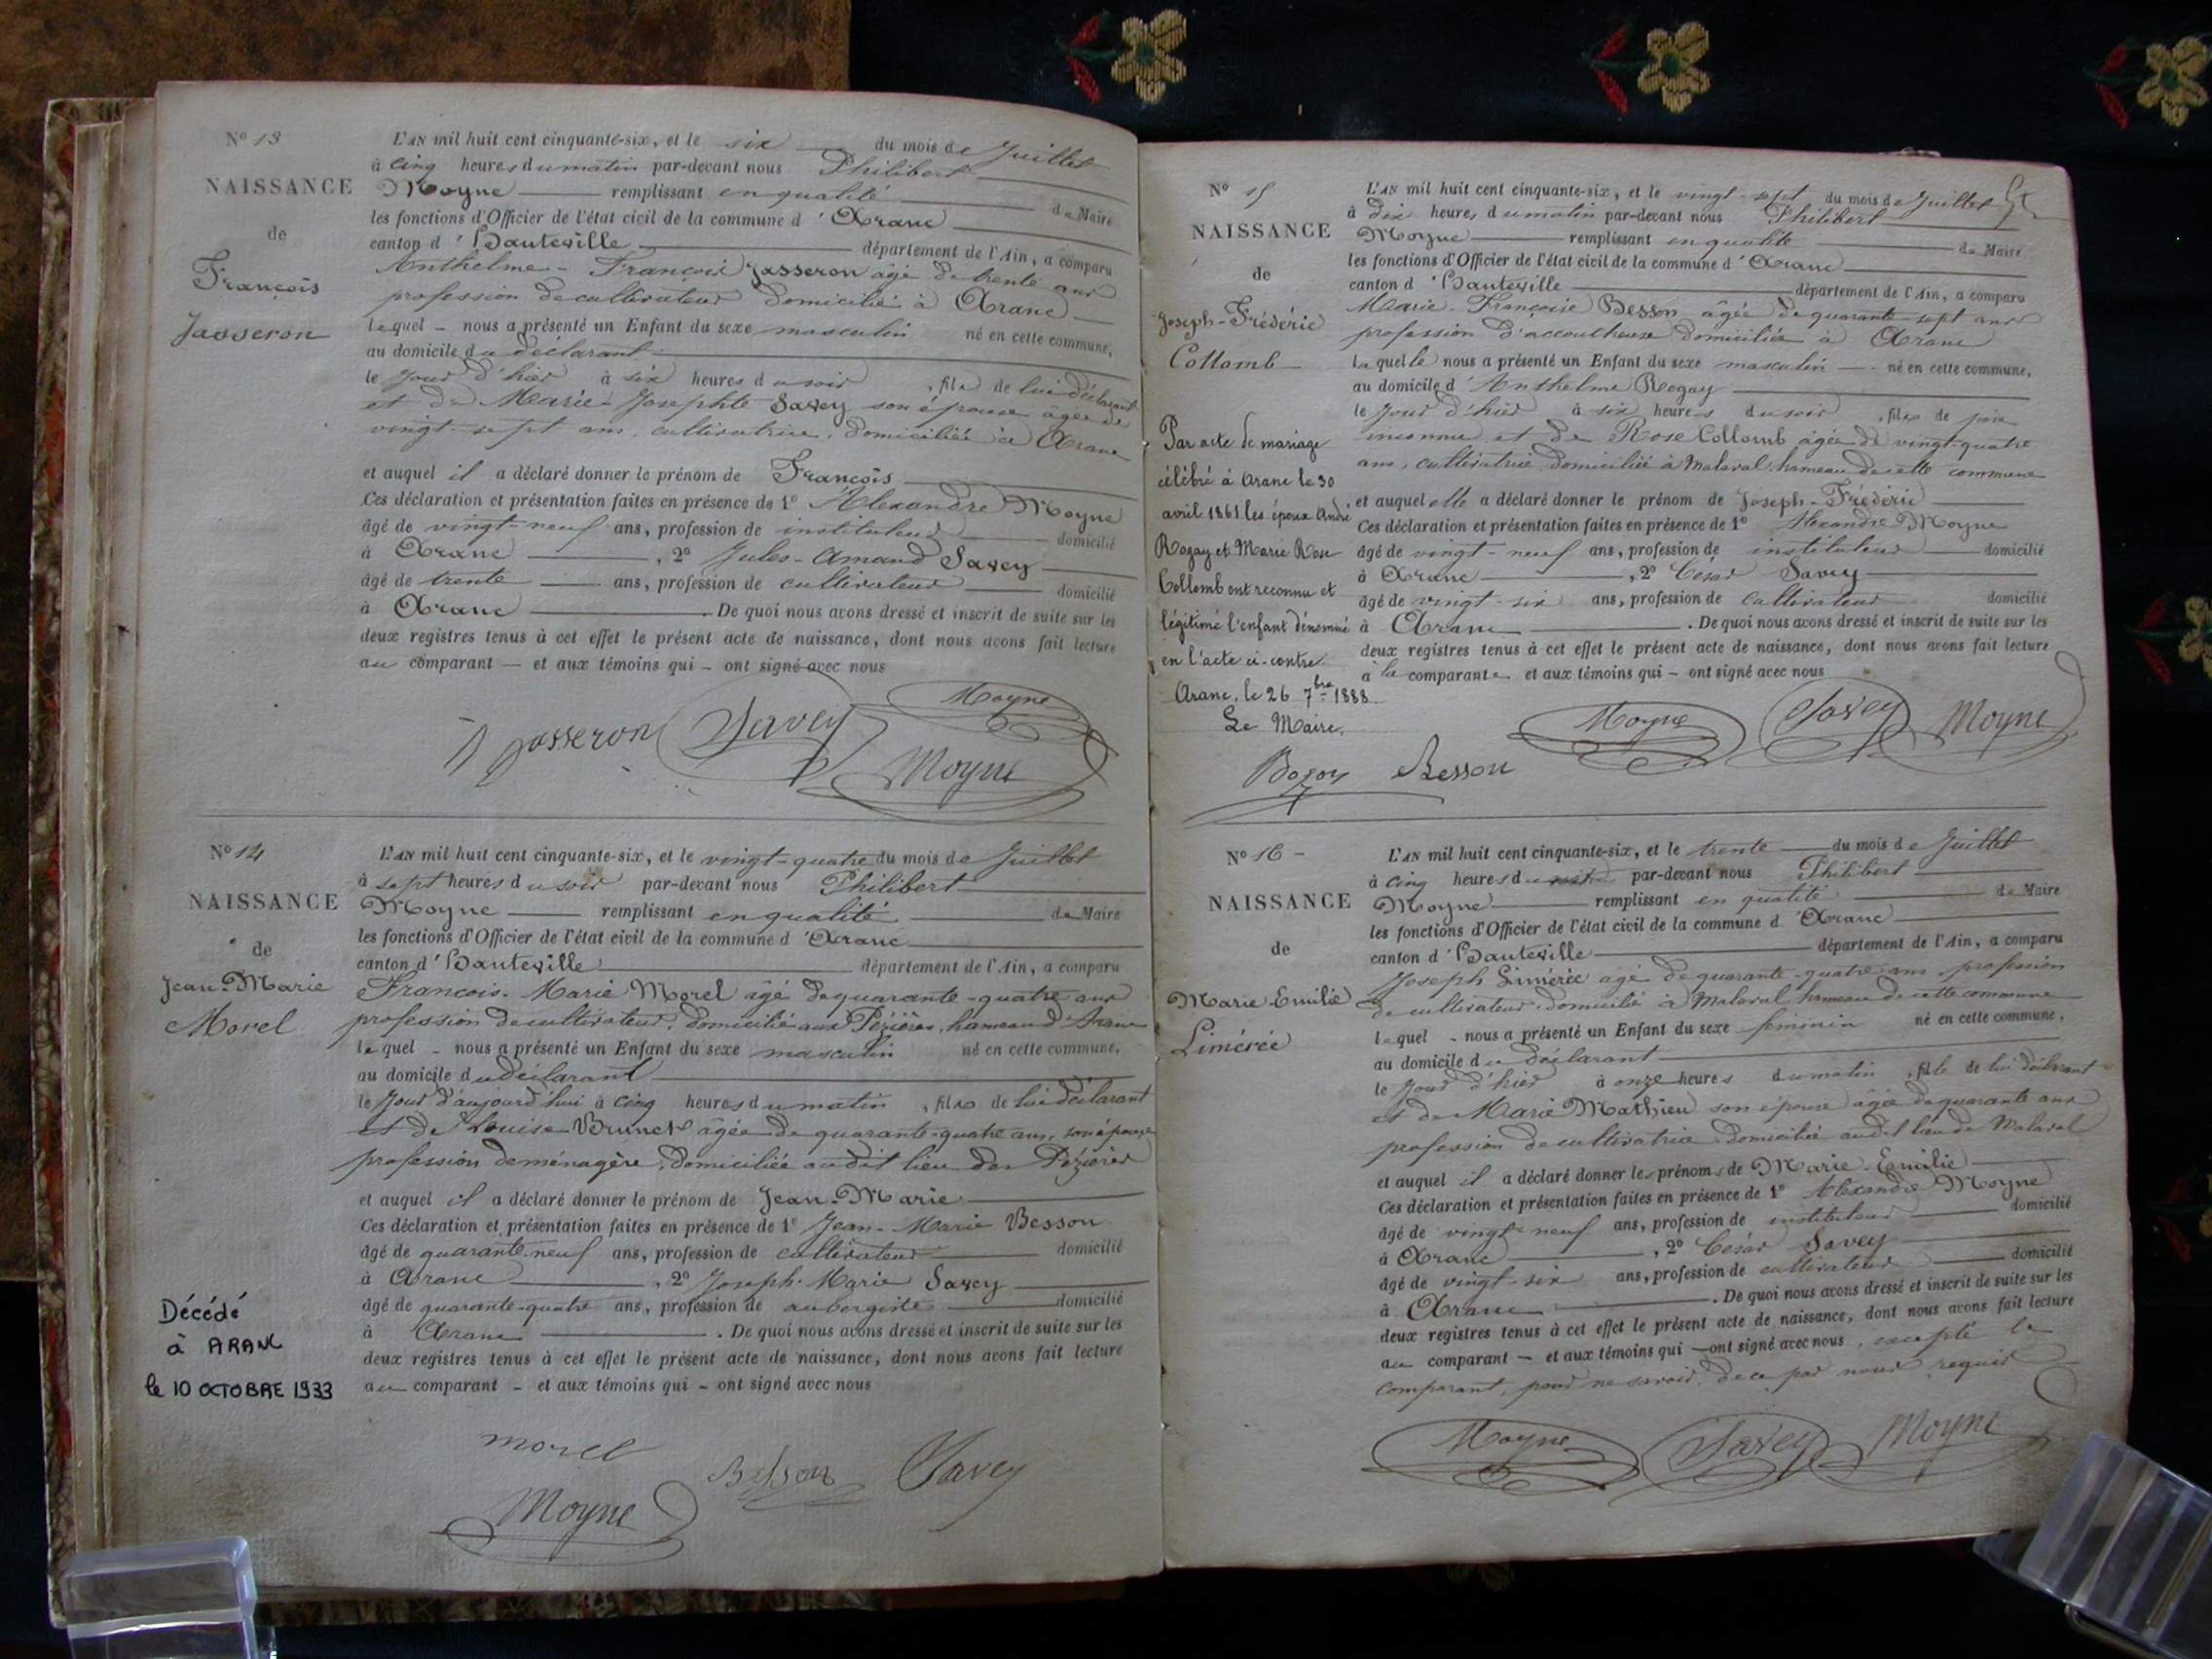 N° 13
NAISSANCE
de
François
Jasseron
L'AN mil huit cent cinquante-six, et le six du mois de Juillet
à cinq heures du matin par-devant nous Philibert
Moyne remplissant en qualité de Maire
les fonctions d'Officier de l'état civil de la commune d'Aranc
canton d'Hauteville département de l'Ain, a comparu
Anthelme-François Jasseron âgé de trente ans
profession de cultivateur domicilié à Aranc
lequel nous a présenté un Enfant du sexe masculin né en cette commune,
au domicile du déclarant
le jour d'hier à six heures du soir, fils de lui déclarant
et de Marie-Josephte Savey son épouse âgée de
vingt-sept ans, cultivatrice, domiciliée à Aranc
et auquel il a déclaré donner le prénom de François
Ces déclaration et présentation faites en présence de 1° Alexandre Moyne
âgé de vingt-neuf ans, profession de instituteur domicilié
à Aranc, 2° Jules-Amand Savey
âgé de trente ans, profession de cultivateur domicilié
à Aranc. De quoi nous avons dressé et inscrit de suite sur les
deux registres tenus à cet effet le présent acte de naissance, dont nous avons fait lecture
au comparant et aux témoins qui ont signé avec nous
Jasseron Savey Moyne
Moyne
N° 14
NAISSANCE
de
Jean-Marie
Morel
Décédé
à ARANC
le 10 OCTOBRE 1933
L'AN mil huit cent cinquante-six, et le vingt-quatre du mois de Juillet
à sept heures du soir par-devant nous Philibert
Moyne remplissant en qualité de Maire
les fonctions d'Officier de l'état civil de la commune d'Aranc
canton d'Hauteville département de l'Ain, a comparu
François-Marie Morel âgé de quarante-quatre ans
profession de cultivateur, domicilié aux Pézières, hameau d'Aranc
lequel nous a présenté un Enfant du sexe masculin né en cette commune,
au domicile du déclarant
le jour d'aujourd'hui à cinq heures du matin, fils de lui déclarant
et de Louise Brunet âgée de quarante-quatre ans, son épouse
profession de ménagère, domiciliée audit lieu des Pézières
et auquel il a déclaré donner le prénom de Jean-Marie
Ces déclaration et présentation faites en présence de 1° Jean-Marie Besson
âgé de quarante-neuf ans, profession de cultivateur domicilié
à Aranc, 2° Joseph-Marie Savey
âgé de quarante-quatre ans, profession de aubergiste domicilié
à Aranc. De quoi nous avons dressé et inscrit de suite sur les
deux registres tenus à cet effet le présent acte de naissance, dont nous avons fait lecture
au comparant et aux témoins qui ont signé avec nous
morel Besson Savey
Moyne
N° 15
NAISSANCE
de
Joseph-Frédéric
Collomb
Par acte de mariage
célébré à Aranc le 30
avril 1861 les époux André
Rogay et Marie Rose
Collomb ont reconnu et
légitimé l'enfant dénommé
en l'acte ci-contre.
Aranc, le 26 7bre 1888
Le Maire,
L'AN mil huit cent cinquante-six, et le vingt-sept du mois de Juillet
à dix heures du matin par-devant nous Philibert
Moyne remplissant en qualité de Maire
les fonctions d'Officier de l'état civil de la commune d'Aranc
canton d'Hauteville département de l'Ain, a comparu
Marie-Françoise Besson âgée de quarante-sept ans
profession d'accoucheuse domiciliée à Aranc
laquelle nous a présenté un Enfant du sexe masculin né en cette commune,
au domicile d'Anthelme Rogay
le jour d'hier à six heures du soir, fils de père
inconnu et de Rose Collomb âgée de vingt-quatre
ans, cultivatrice domiciliée à Malaval hameau de cette commune
et auquel elle a déclaré donner le prénom de Joseph-Frédéric
Ces déclaration et présentation faites en présence de 1° Alexandre Moyne
âgé de vingt-neuf ans, profession de instituteur domicilié
à Aranc, 2° César Savey
âgé de vingt-six ans, profession de cultivateur domicilié
à Aranc. De quoi nous avons dressé et inscrit de suite sur les
deux registres tenus à cet effet le présent acte de naissance, dont nous avons fait lecture
à la comparante et aux témoins qui ont signé avec nous
Besson Moyne Savey Moyne
N° 16
NAISSANCE
de
Marie-Emilie
Limérée
L'AN mil huit cent cinquante-six, et le trente du mois de Juillet
à cinq heures du par-devant nous Philibert
Moyne remplissant en qualité de Maire
les fonctions d'Officier de l'état civil de la commune d'Aranc
canton d'Hauteville département de l'Ain, a comparu
Joseph Limérée âgé de quarante-quatre ans profession
de cultivateur domicilié à Malaval hameau de cette commune
lequel nous a présenté un Enfant du sexe féminin né en cette commune,
au domicile du déclarant
le jour d'hier à onze heures du matin, fille de lui déclarant
et de Marie Mathieu son épouse âgée de quarante ans
profession de cultivatrice domiciliée audit lieu de Malaval
et auquel il a déclaré donner les prénoms de Marie-Emilie
Ces déclaration et présentation faites en présence de 1° Alexandre Moyne
âgé de vingt-neuf ans, profession de instituteur domicilié
à Aranc, 2° César Savey
âgé de vingt-six ans, profession de cultivateur domicilié
à Aranc. De quoi nous avons dressé et inscrit de suite sur les
deux registres tenus à cet effet le présent acte de naissance, dont nous avons fait lecture
au comparant et aux témoins qui ont signé avec nous, excepté le
comparant, pour ne savoir, de ce par nous requis
Moyne Savey Moyne